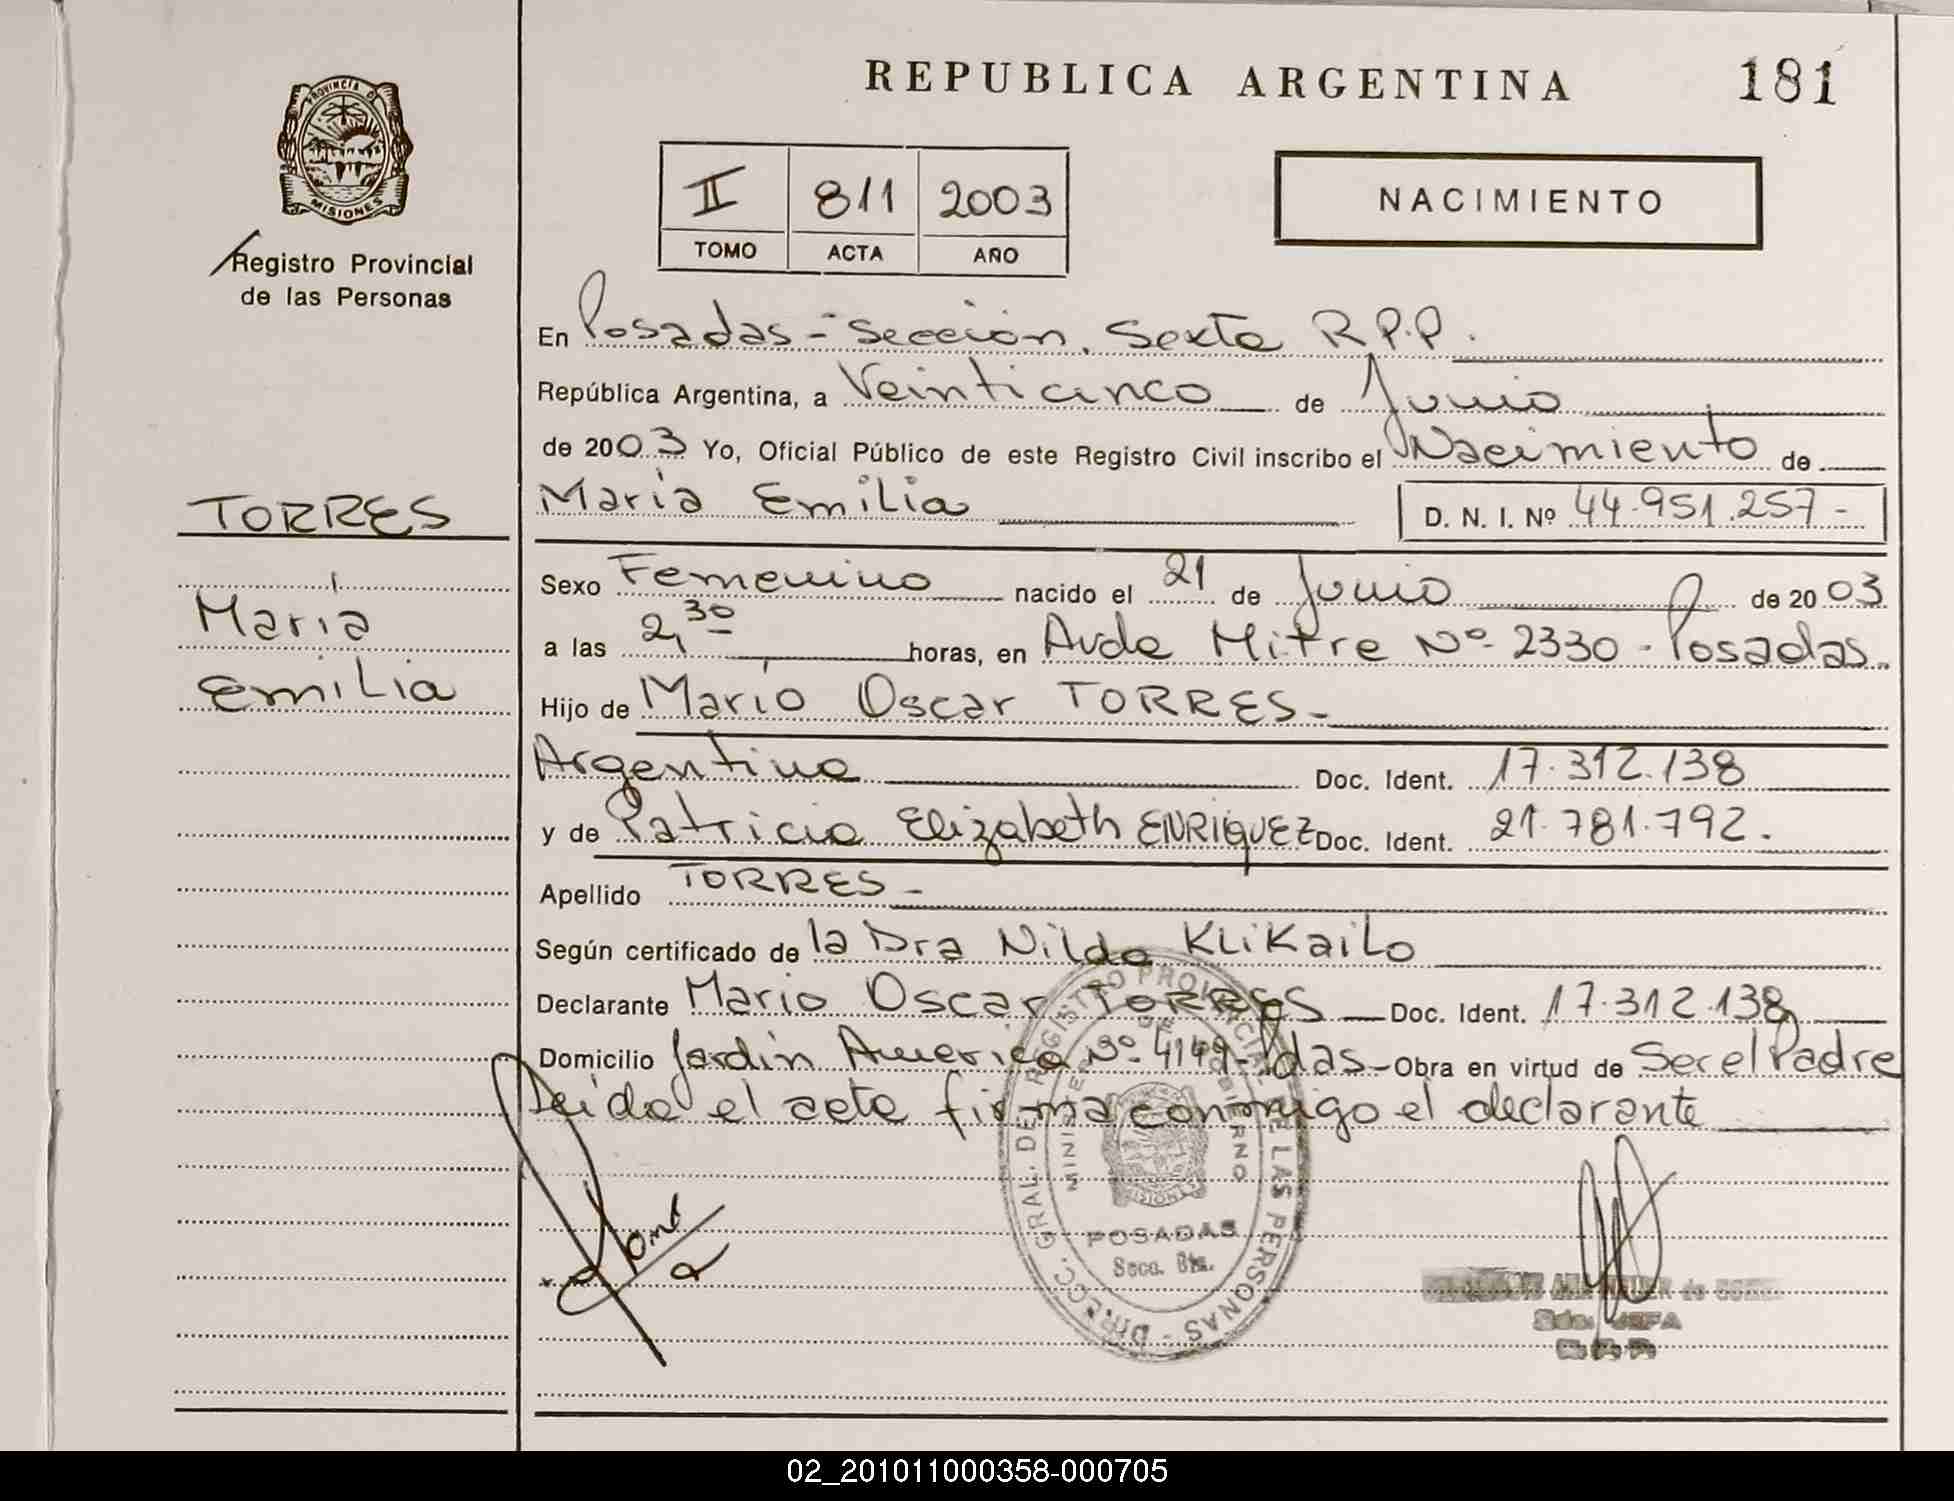 REPUBLICA ARGENTINA
181
PROVINCIA DE
MISIONES
Registro Provincial
de las Personas
II 811 2003
TOMO ACTA AÑO
NACIMIENTO
En Posadas - Sección Sexta R.P.P.
República Argentina, a Veinticinco de Junio
de 2003 Yo, Oficial Público de este Registro Civil inscribo el Nacimiento de
María Emilia D. N. I. Nº 44.951.257 -
TORRES
María
Emilia
Sexo Femenino nacido el 21 de Junio de 2003
a las 2,30 horas, en Avda Mitre Nº 2330 - Posadas
Hijo de Mario Oscar TORRES -
Argentino Doc. Ident. 17.312.138
y de Patricia Elizabeth ENRIQUEZ Doc. Ident. 21.781.792.
Apellido TORRES -
Según certificado de la Dra Nilda KLiKailo
Declarante Mario Oscar TORRES Doc. Ident. 17.312.138
Domicilio Jardín America Nº 4149 - Pdas - Obra en virtud de Ser el Padre
Leída el acta firma conmigo el declarante
DIRECC. GRAL. DE REGISTRO PROVINCIAL DE LAS PERSONAS -
MINISTERIO DE GOBIERNO
MISIONES
POSADAS
Secc. 6ta.
02_201011000358-000705